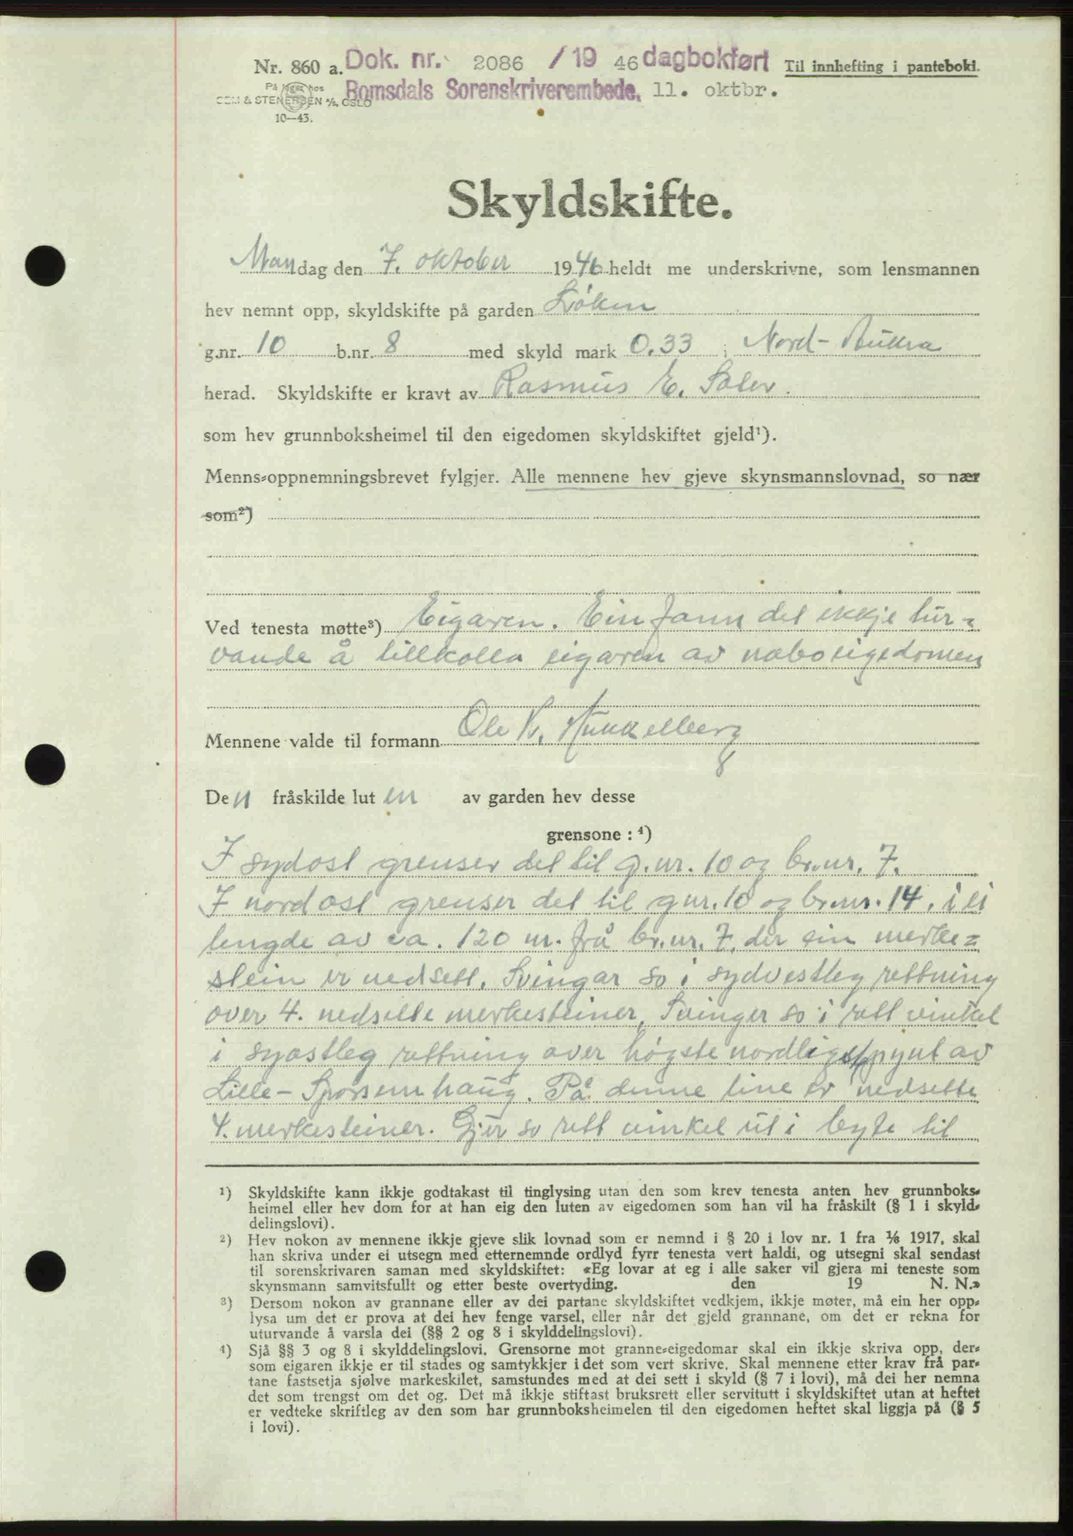 Nr. 860 a. Dok. nr. 2086 / 19 46 dagbokført Til innhefting i pantebok.
På lager hos Romsdals Sorenskriverembede, 11. oktbr.
SEM & STENERSEN A/S, OSLO
10—43.
Skyldskifte.
Mandag den 7. oktober 1946 heldt me underskrivne, som lensmannen
hev nemnt opp, skyldskifte på garden Löken
g.nr. 10 b.nr. 8 med skyld mark 0.33 i Nord-Aukra
herad. Skyldskifte er kravt av Rasmus E.
som hev grunnboksheimel til den eigedomen skyldskiftet gjeld¹).
Menns-oppnemningsbrevet fylgjer. Alle mennene hev gjeve skynsmannslovnad, so nær
som²)
Ved tenesta møtte³) Eigaren. Ein fann det ikkje tur-
vande å tillkalla eigaren av naboeigedomen
Mennene valde til formann Ole K.
Den fråskilde luten av garden hev desse
grensone : ⁴)
I sydost grenser det til g.nr. 10 og br.nr. 7.
I nordost grenser det til gnr. 10 og br.nr. 14. i ei
lengde av ca. 120 m. frå br.nr. 7. der ein merke-
stein er nedsett. Svingar so i sydvestleg rettning
over 4. nedsette merkesteiner. Svinger so i rett vinkel
i syostleg rettning over högste nordligste pynt av
Lille- På denne line er nedsette
4. merkesteiner. Gjer so rett vinkel ut i byte til
¹) Skyldskifte kann ikkje godtakast til tinglysing utan den som krev tenesta anten hev grunnboks-
heimel eller hev dom for at han eig den luten av eigedomen som han vil ha fråskilt (§ 1 i skyld-
delingslovi).
²) Hev nokon av mennene ikkje gjeve slik lovnad som er nemnd i § 20 i lov nr. 1 fra 1/6 1917, skal
han skriva under ei utsegn med etternemnde ordlyd fyrr tenesta vert haldi, og utsegni skal sendast
til sorenskrivaren saman med skyldskiftet: «Eg lovar at eg i alle saker vil gjera mi teneste som
skynsmann samvitsfullt og etter beste overtyding. den 19 N. N.»
³) Dersom nokon av grannane eller av dei partane skyldskiftet vedkjem, ikkje møter, må ein her opp-
lysa um det er prova at dei hev fenge varsel, eller når det gjeld grannane, om det er rekna for
uturvande å varsla dei (§§ 2 og 8 i skylddelingslovi).
⁴) Sjå §§ 3 og 8 i skylddelingslovi. Grensorne mot granne-eigedomar skal ein ikkje skriva opp, der-
som eigaren ikkje er til stades og samtykkjer i det som vert skrive. Skal mennene etter krav frå par-
tane fastsetja sjølve markeskilet, samstundes med at dei sett i skyld (§ 7 i lovi), må dei her nemna
det som trengst om det og. Det må ikkje stiftast bruksrett eller servitutt i skyldskiftet utan at heftet
er vedteke skriftleg av den som har grunnboksheimelen til den eigedomen heftet skal liggja på (§ 5
i lovi).